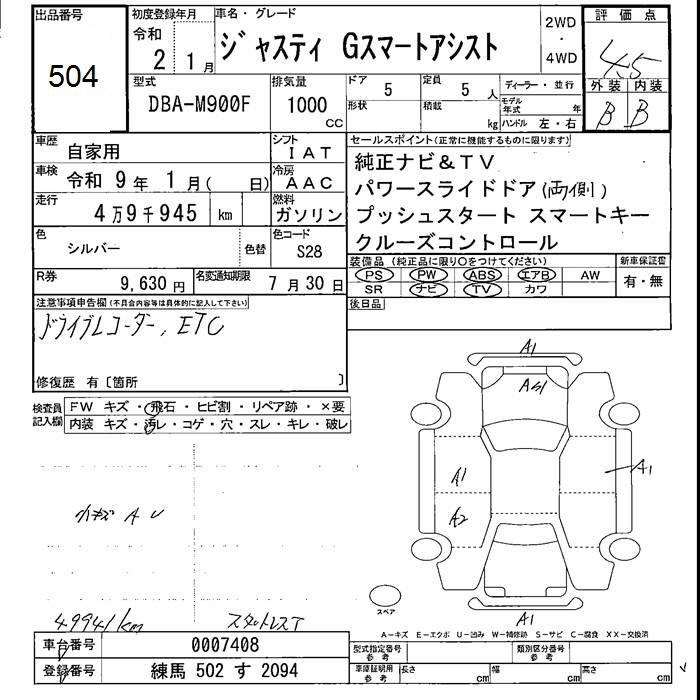 出品番号
504
初度登録年月
令和
2 1月
車名・グレード
ジャスティ Gスマートアシスト
2WD
・
4WD
評価点
4.5
外装 内装
B B
型式
DBA-M900F
排気量
1000
CC
ドア
5
定員
5 人
ディーラー・並行
形状
積載
kg
モデル年式
年
ハンドル 左・右
車歴
自家用
シフト
IAT
車検
令和 9年 1月( 日)
冷房
AAC
走行
4万9千945 km
燃料
ガソリン
色
シルバー
色替
色コード
S28
R券
9,630円
名変通知期限
7月30日
セールスポイント(正常に機能するものに限ります)
純正ナビ&TV
パワースライドドア(両側)
プッシュスタート スマートキー
クルーズコントロール
装備品(純正品に限り〇をつけてください)
PS PW ABS エアB AW
SR ナビ TV カワ
新車保証書
有・無
後日品
注意事項申告欄(不具合内容等は具体的に記入して下さい)
ドライブレコーダー, ETC
修復歴 有〔箇所 〕
検査員記入欄
FW キズ・飛石・ヒビ割・リペア跡・×要
内装 キズ・汚レ・コゲ・穴・スレ・キレ・破レ
小キズ A U
A1
A1
A2
A1
A1
スペア
49941km
スタットレスT
A-キズ E-エクボ U-凹み W-補修跡 S-サビ C-腐食 XX-交換済
車台番号
0007408
登録番号
練馬 502 す 2094
型式指定番号
参考
類別区分番号
参考
車庫証明用
参考
長さ cm
幅 cm
高さ cm